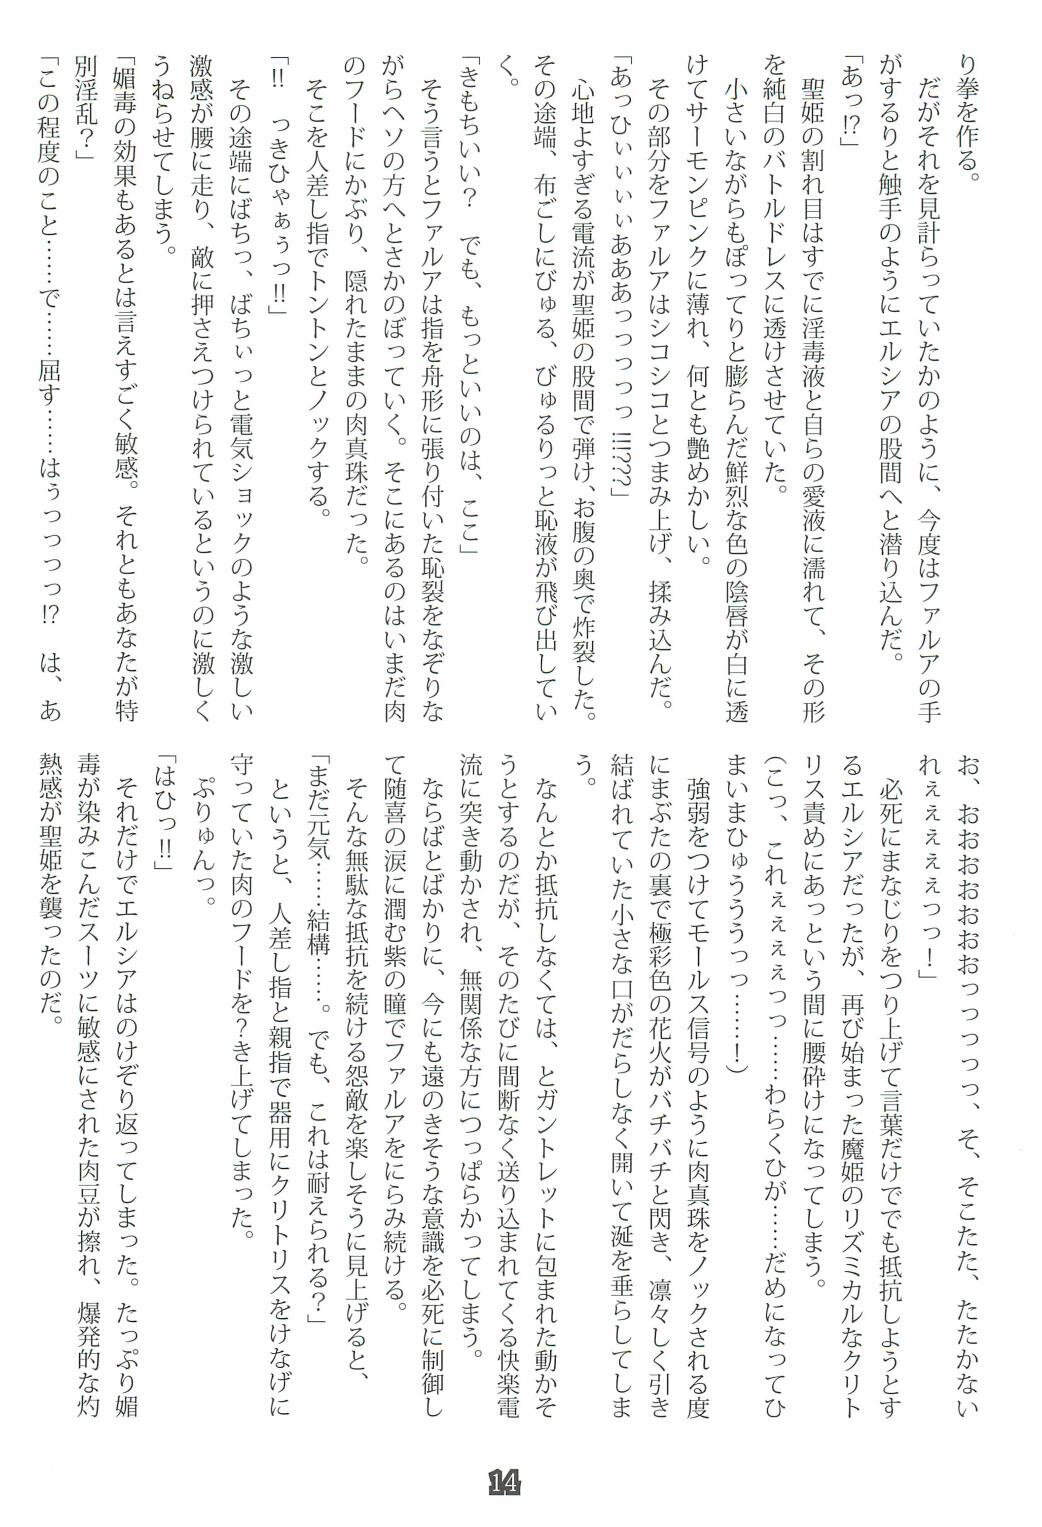 り拳を作る。
　だがそれを見計らっていたかのように、今度はファルアの手
がするりと触手のようにエルシアの股間へと潜り込んだ。
「あっ!?」
　聖姫の割れ目はすでに淫毒液と自らの愛液に濡れて、その形
を純白のバトルドレスに透けさせていた。
　小さいながらもぽってりと膨らんだ鮮烈な色の陰唇が白に透
けてサーモンピンクに薄れ、何とも艶めかしい。
　その部分をファルアはシコシコとつまみ上げ、揉み込んだ。
「あっひぃぃぃぃあああっっっっ!!!???」
　心地よすぎる電流が聖姫の股間で弾け、お腹の奥で炸裂した。
その途端、布ごしにびゅる、びゅるりっと恥液が飛び出してい
く。
「きもちいい？　でも、もっといいのは、ここ」
　そう言うとファルアは指を舟形に張り付いた恥裂をなぞりな
がらヘソの方へとさかのぼっていく。そこにあるのはいまだ肉
のフードにかぶり、隠れたままの肉真珠だった。
　そこを人差し指でトントンとノックする。
「!!　っきひゃぁぅっ!!」
　その途端にばちっ、ばちぃっと電気ショックのような激しい
激感が腰に走り、敵に押さえつけられているというのに激しく
うねらせてしまう。
「媚毒の効果もあるとは言えすごく敏感。それともあなたが特
別淫乱？」
「この程度のこと……で……屈す……はぅっっっっ!?　は、あ
お、おおおおおおおっっっっ、そ、そこたた、たたかない
れぇぇぇぇぇっっ！」
　必死にまなじりをつり上げて言葉だけででも抵抗しようとす
るエルシアだったが、再び始まった魔姫のリズミカルなクリト
リス責めにあっという間に腰砕けになってしまう。
（こっ、これぇぇぇぇっっ……わらくひが……だめになってひ
まいまひゅうううっっ……！）
　強弱をつけてモールス信号のように肉真珠をノックされる度
にまぶたの裏で極彩色の花火がバチバチと閃き、凛々しく引き
結ばれていた小さな口がだらしなく開いて涎を垂らしてしま
う。
　なんとか抵抗しなくては、とガントレットに包まれた動かそ
うとするのだが、そのたびに間断なく送り込まれてくる快楽電
流に突き動かされ、無関係な方につっぱらかってしまう。
　ならばとばかりに、今にも遠のきそうな意識を必死に制御し
て随喜の涙に潤む紫の瞳でファルアをにらみ続ける。
　そんな無駄な抵抗を続ける怨敵を楽しそうに見上げると、
「まだ元気……結構……。でも、これは耐えられる？」
　というと、人差し指と親指で器用にクリトリスをけなげに
守っていた肉のフードを？き上げてしまった。
　ぷりゅんっ。
「はひっ!!」
　それだけでエルシアはのけぞり返ってしまった。たっぷり媚
毒が染みこんだスーツに敏感にされた肉豆が擦れ、爆発的な灼
熱感が聖姫を襲ったのだ。
14